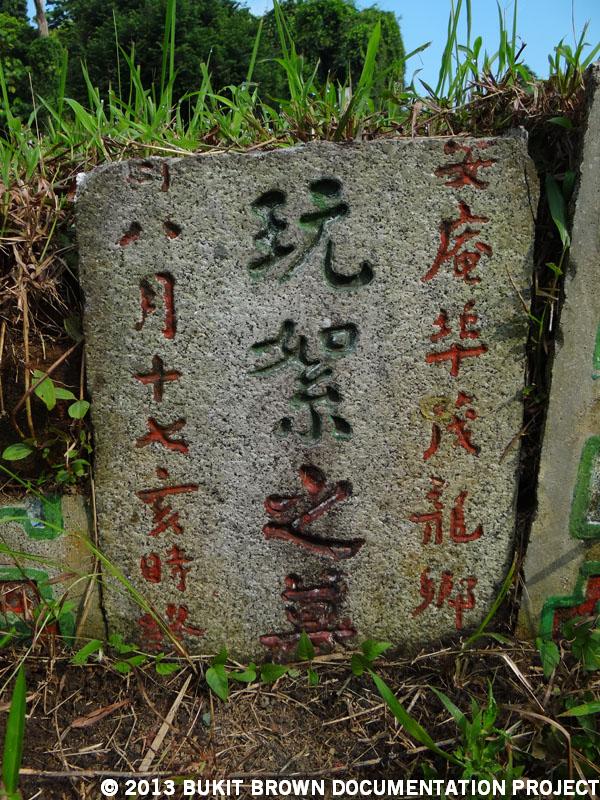 安庵埠茂龍鄉
玩絮之墓
八月十七亥時
© 2013 BUKIT BROWN DOCUMENTATION PROJECT